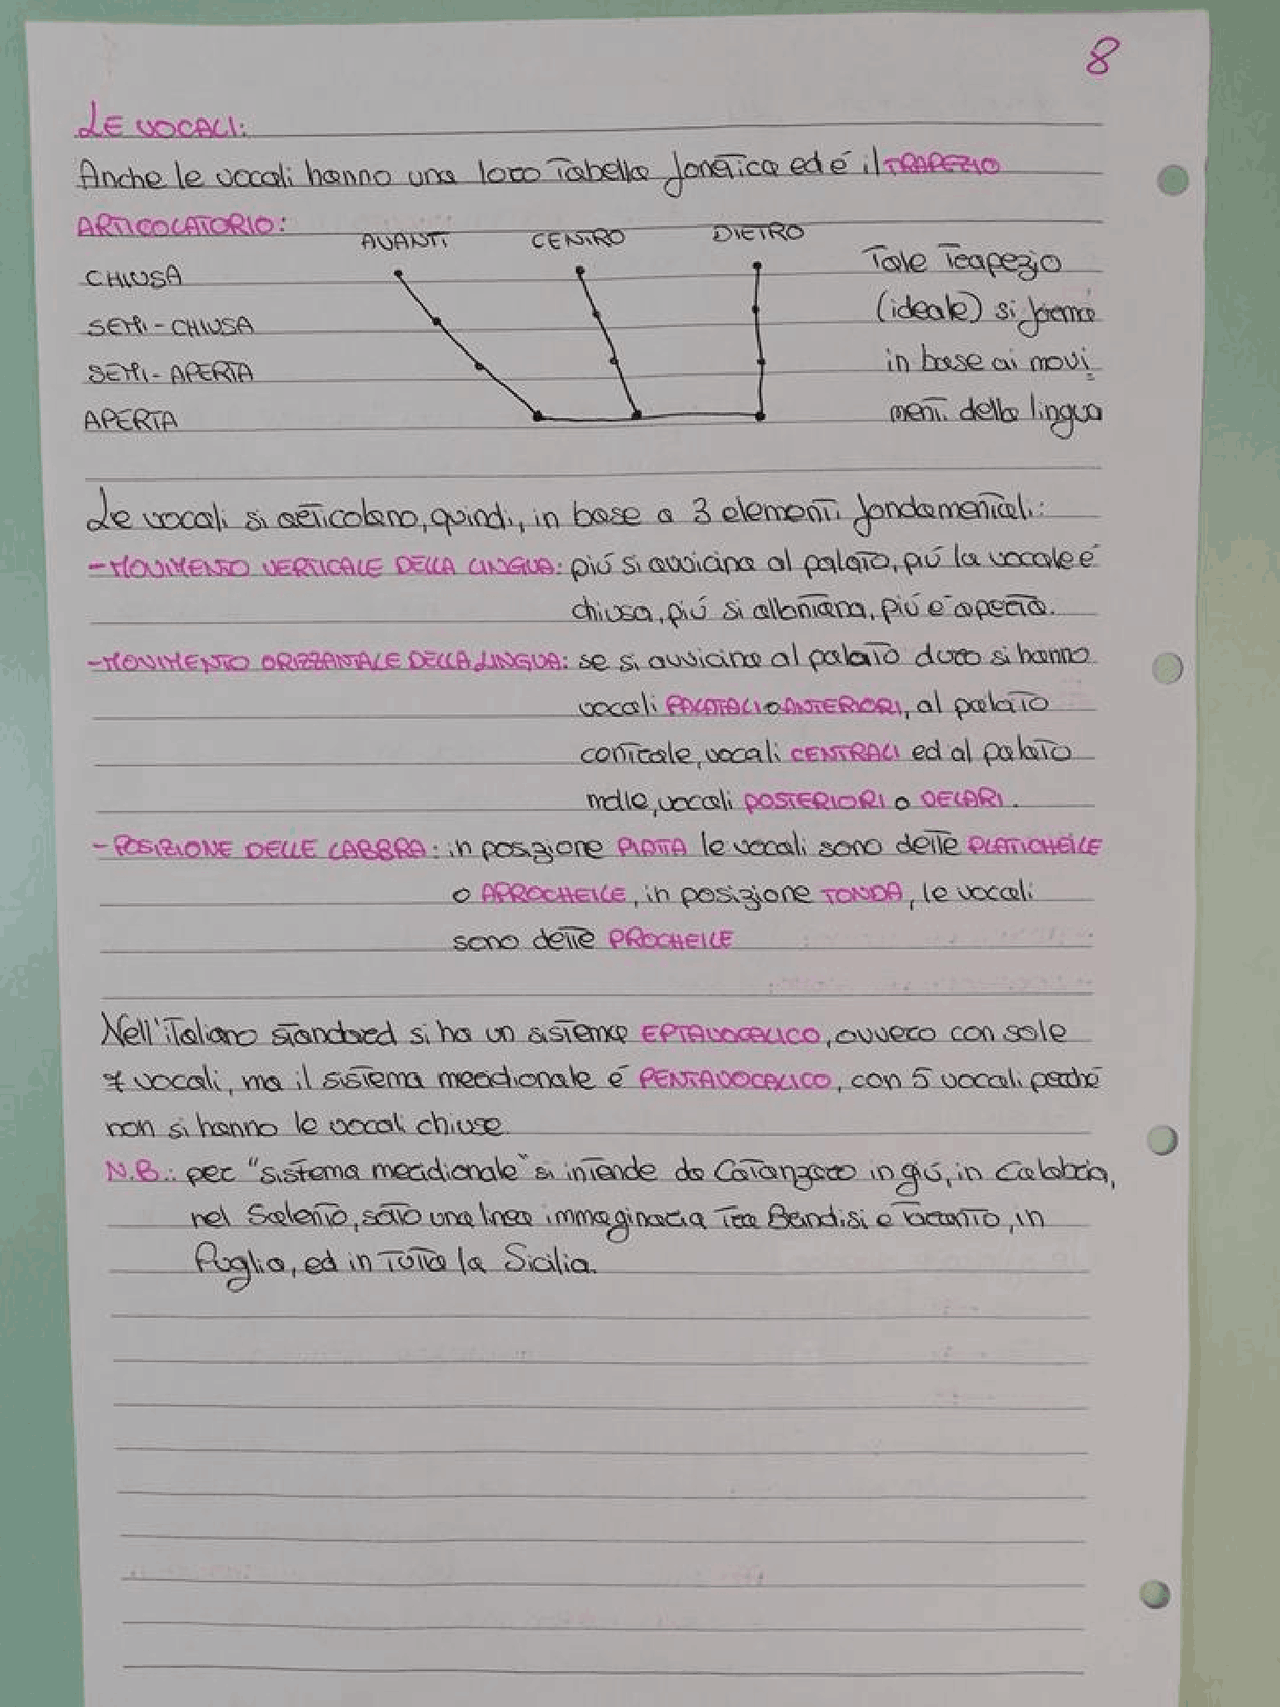 8
LE VOCALI:
Anche le vocali hanno una loro tabella fonetica ed é il TRAPEZIO
ARTICOLATORIO:
AVANTI CENTRO DIETRO
CHIUSA
SEMI-CHIUSA
SEMI-APERTA
APERTA
Tale trapezio
(ideale) si forma
in base ai movi
menti della lingua
Le vocali si articolano, quindi, in base a 3 elementi fondamentali:
-MOVIMENTO VERTICALE DELLA LINGUA: piú si avvicina al palato, piú la vocale é
chiusa, piú si allontana, piú é aperta.
-MOVIMENTO ORIZZANTALE DELLA LINGUA: se si avvicina al palato duro si hanno
vocali PALATALI o ANTERIORI, al palato
centrale, vocali CENTRALI ed al palato
molle, vocali POSTERIORI o VELARI.
-POSIZIONE DELLE LABBRA: in posizione PIATTA le vocali sono dette PLATICHEILE
o APROCHEILE, in posizione TONDA, le vocali
sono dette PROCHEILE
Nell'italiano standard si ha un sistema EPTAVOCALICO, ovvero con sole
7 vocali, ma il sistema meridionale é PENTAVOCALICO, con 5 vocali perché
non si hanno le vocali chiuse.
N.B.: per "sistema meridionale" si intende da Catanzaro in giú, in Calabria,
nel Salento, sotto una linea immaginaria tra Brindisi e Taranto, in
Puglia, ed in tutta la Sicilia.